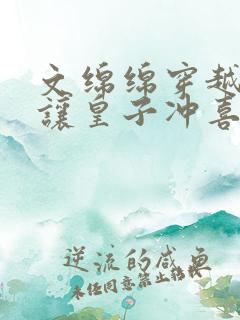 文绵绵穿越
讓皇子冲喜
逆流的咸鱼
未经同意禁止转载